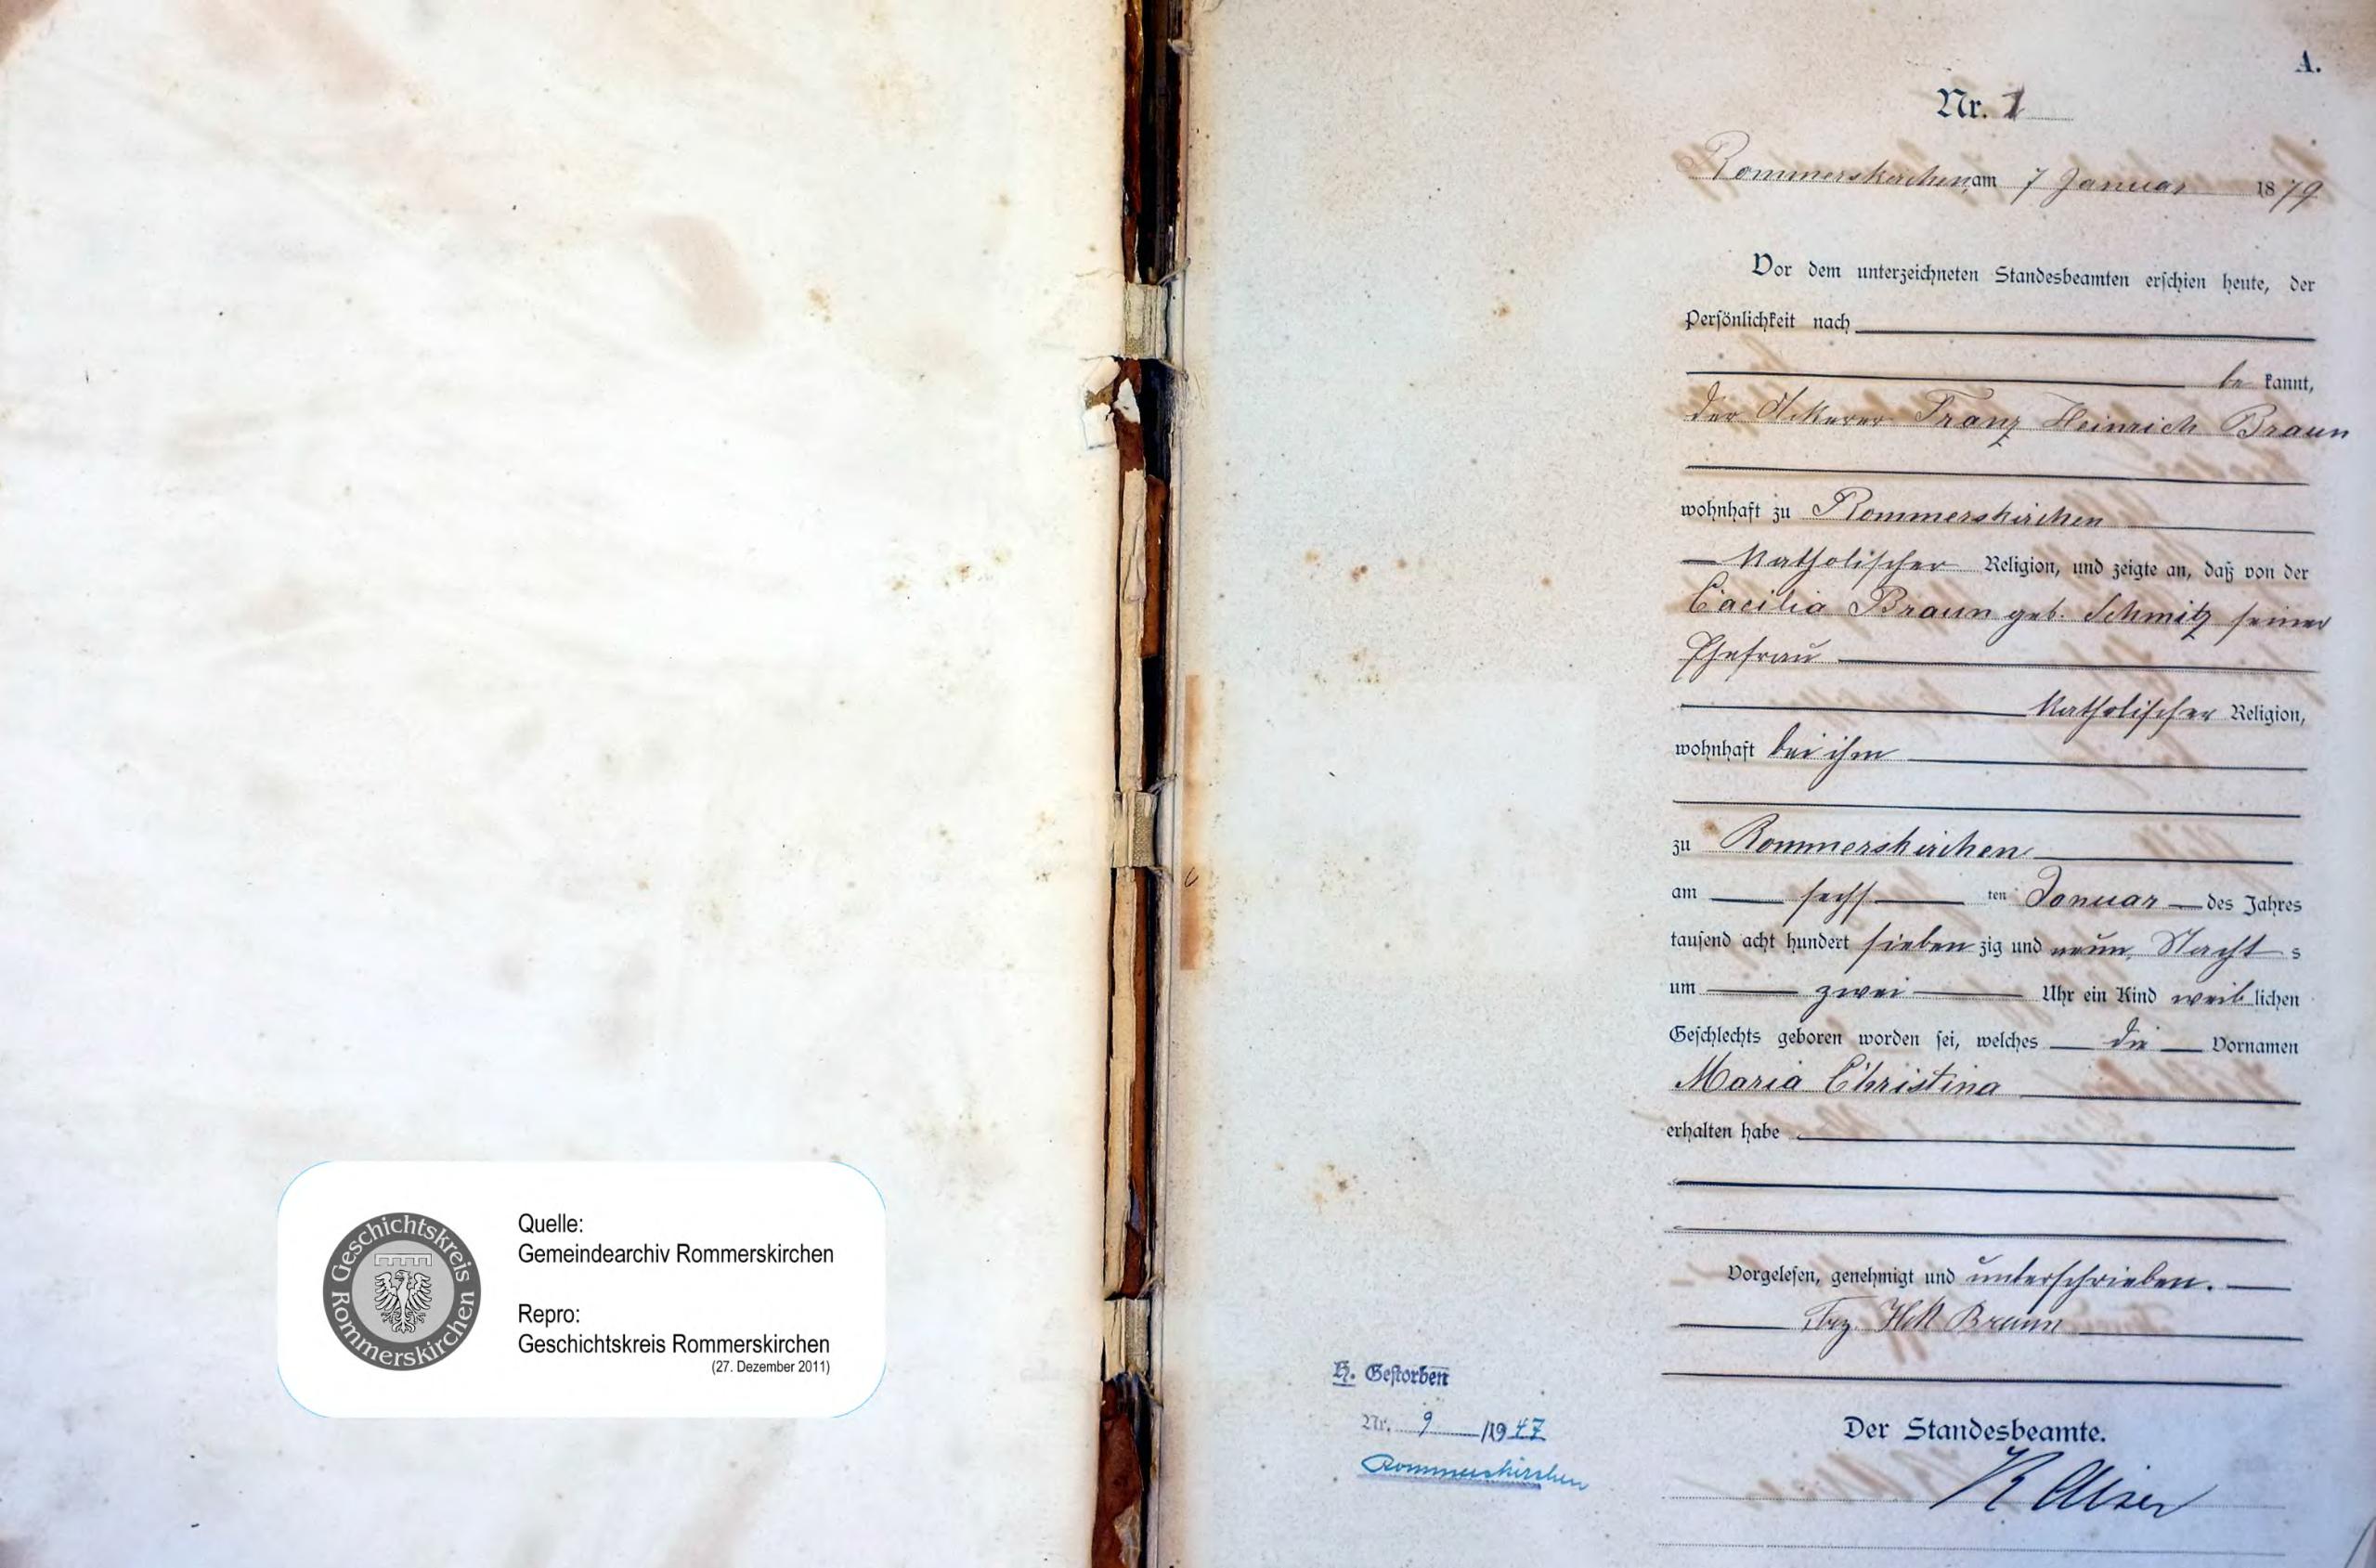 Geschichtskreis Rommerskirchen
Quelle:
Gemeindearchiv Rommerskirchen
Repro:
Geschichtskreis Rommerskirchen
(27. Dezember 2011)
A.
Nr. 1
Rommerskirchen am 7 Januar 1879
Vor dem unterzeichneten Standesbeamten erschien heute, der
Persönlichkeit nach
be kannt,
der Ackerer Franz Heinrich Braun
wohnhaft zu Rommerskirchen
katholischer Religion, und zeigte an, daß von der
Cäcilia Braun geb. Schmitz seiner
Ehefrau
katholischer Religion,
wohnhaft bei ihm
zu Rommerskirchen
am sechs ten Januar des Jahres
tausend acht hundert sieben zig und neun, Nacht s
um zwei Uhr ein Kind weib lichen
Geschlechts geboren worden sei, welches die Vornamen
Maria Christina
erhalten habe
Vorgelesen, genehmigt und unterschrieben.
Frz. Braun
Der Standesbeamte.
H. Gestorben
Nr. 9 /1947
Rommerskirchen